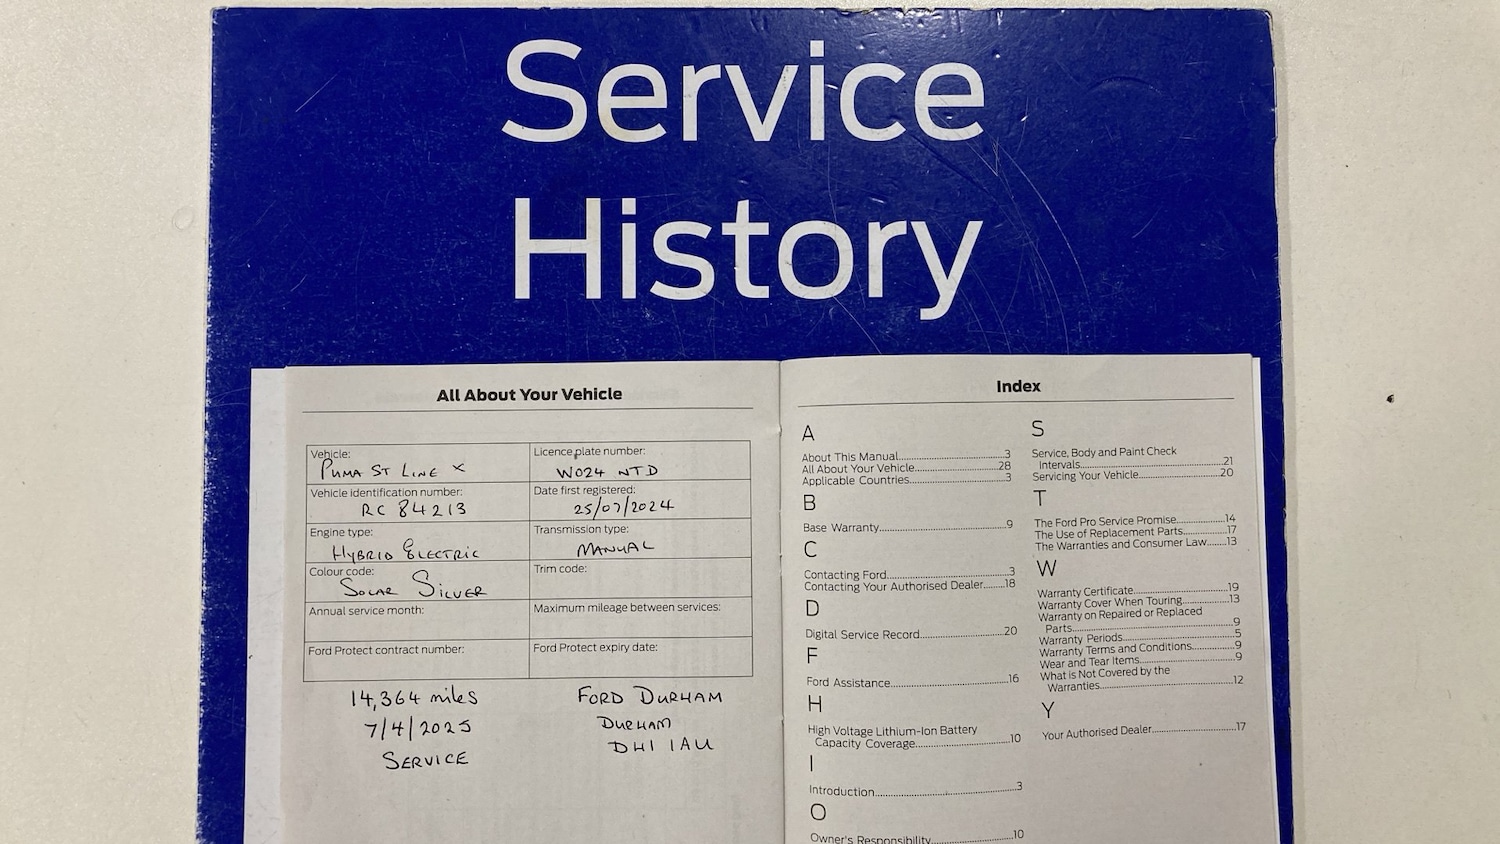 Service
History
All About Your Vehicle
Vehicle:
PUMA ST LINE X
Licence plate number:
WO24 NTD
Vehicle identification number:
RC 84213
Date first registered:
25/07/2024
Engine type:
HYBRID ELECTRIC
Transmission type:
MANUAL
Colour code:
SOLAR SILVER
Trim code:
Annual service month:
Maximum mileage between services:
Ford Protect contract number:
Ford Protect expiry date:
14,364 miles
7/4/2025
SERVICE
FORD DURHAM
DURHAM
DH1 1AU
Index
A
About This Manual...3
All About Your Vehicle...28
Applicable Countries...3
B
Base Warranty...9
C
Contacting Ford...3
Contacting Your Authorised Dealer...18
D
Digital Service Record...20
F
Ford Assistance...16
H
High Voltage Lithium-Ion Battery
Capacity Coverage...10
I
Introduction...3
O
Owner's Responsibility...10
S
Service, Body and Paint Check
Intervals...21
Servicing Your Vehicle...20
T
The Ford Pro Service Promise...14
The Use of Replacement Parts...17
The Warranties and Consumer Law...13
W
Warranty Certificate...19
Warranty Cover When Touring...13
Warranty on Repaired or Replaced
Parts...9
Warranty Periods...5
Warranty Terms and Conditions...9
Wear and Tear Items...9
What is Not Covered by the
Warranties...12
Y
Your Authorised Dealer...17